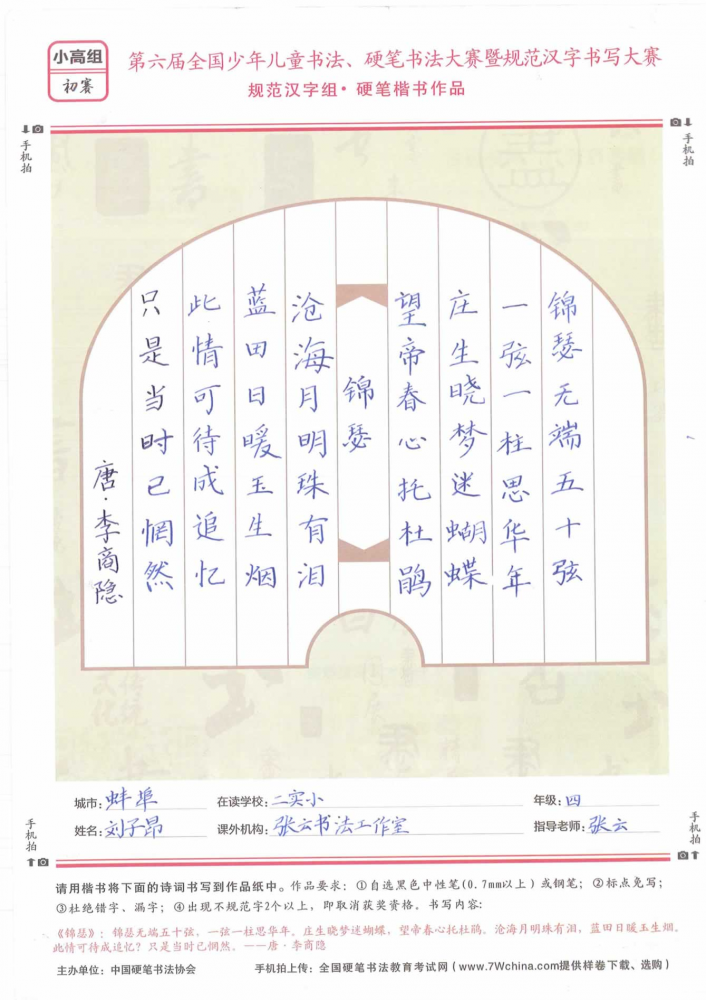 小高组
初赛
第六届全国少年儿童书法、硬笔书法大赛暨规范汉字书写大赛
规范汉字组·硬笔楷书作品
手机拍
手机拍
锦瑟无端五十弦
一弦一柱思华年
庄生晓梦迷蝴蝶
望帝春心托杜鹃
锦瑟
沧海月明珠有泪
蓝田日暖玉生烟
此情可待成追忆
只是当时已惘然
唐·李商隐
城市:蚌埠 在读学校:二实小 年级:四
姓名:刘子昂 课外机构:张云书法工作室 指导老师:张云
手机拍
手机拍
请用楷书将下面的诗词书写到作品纸中。作品要求：①自选黑色中性笔(0.7mm以上）或钢笔；②标点免写；
③杜绝错字、漏字；④出现不规范字2个以上，即取消获奖资格。书写内容:
《锦瑟》：锦瑟无端五十弦，一弦一柱思华年。庄生晓梦迷蝴蝶，望帝春心托杜鹃。沧海月明珠有泪，蓝田日暖玉生烟。
此情可待成追忆？只是当时已惘然。——唐·李商隐
主办单位：中国硬笔书法协会 手机拍上传：全国硬笔书法教育考试网（www.7Wchina.com提供样卷下载、选购）